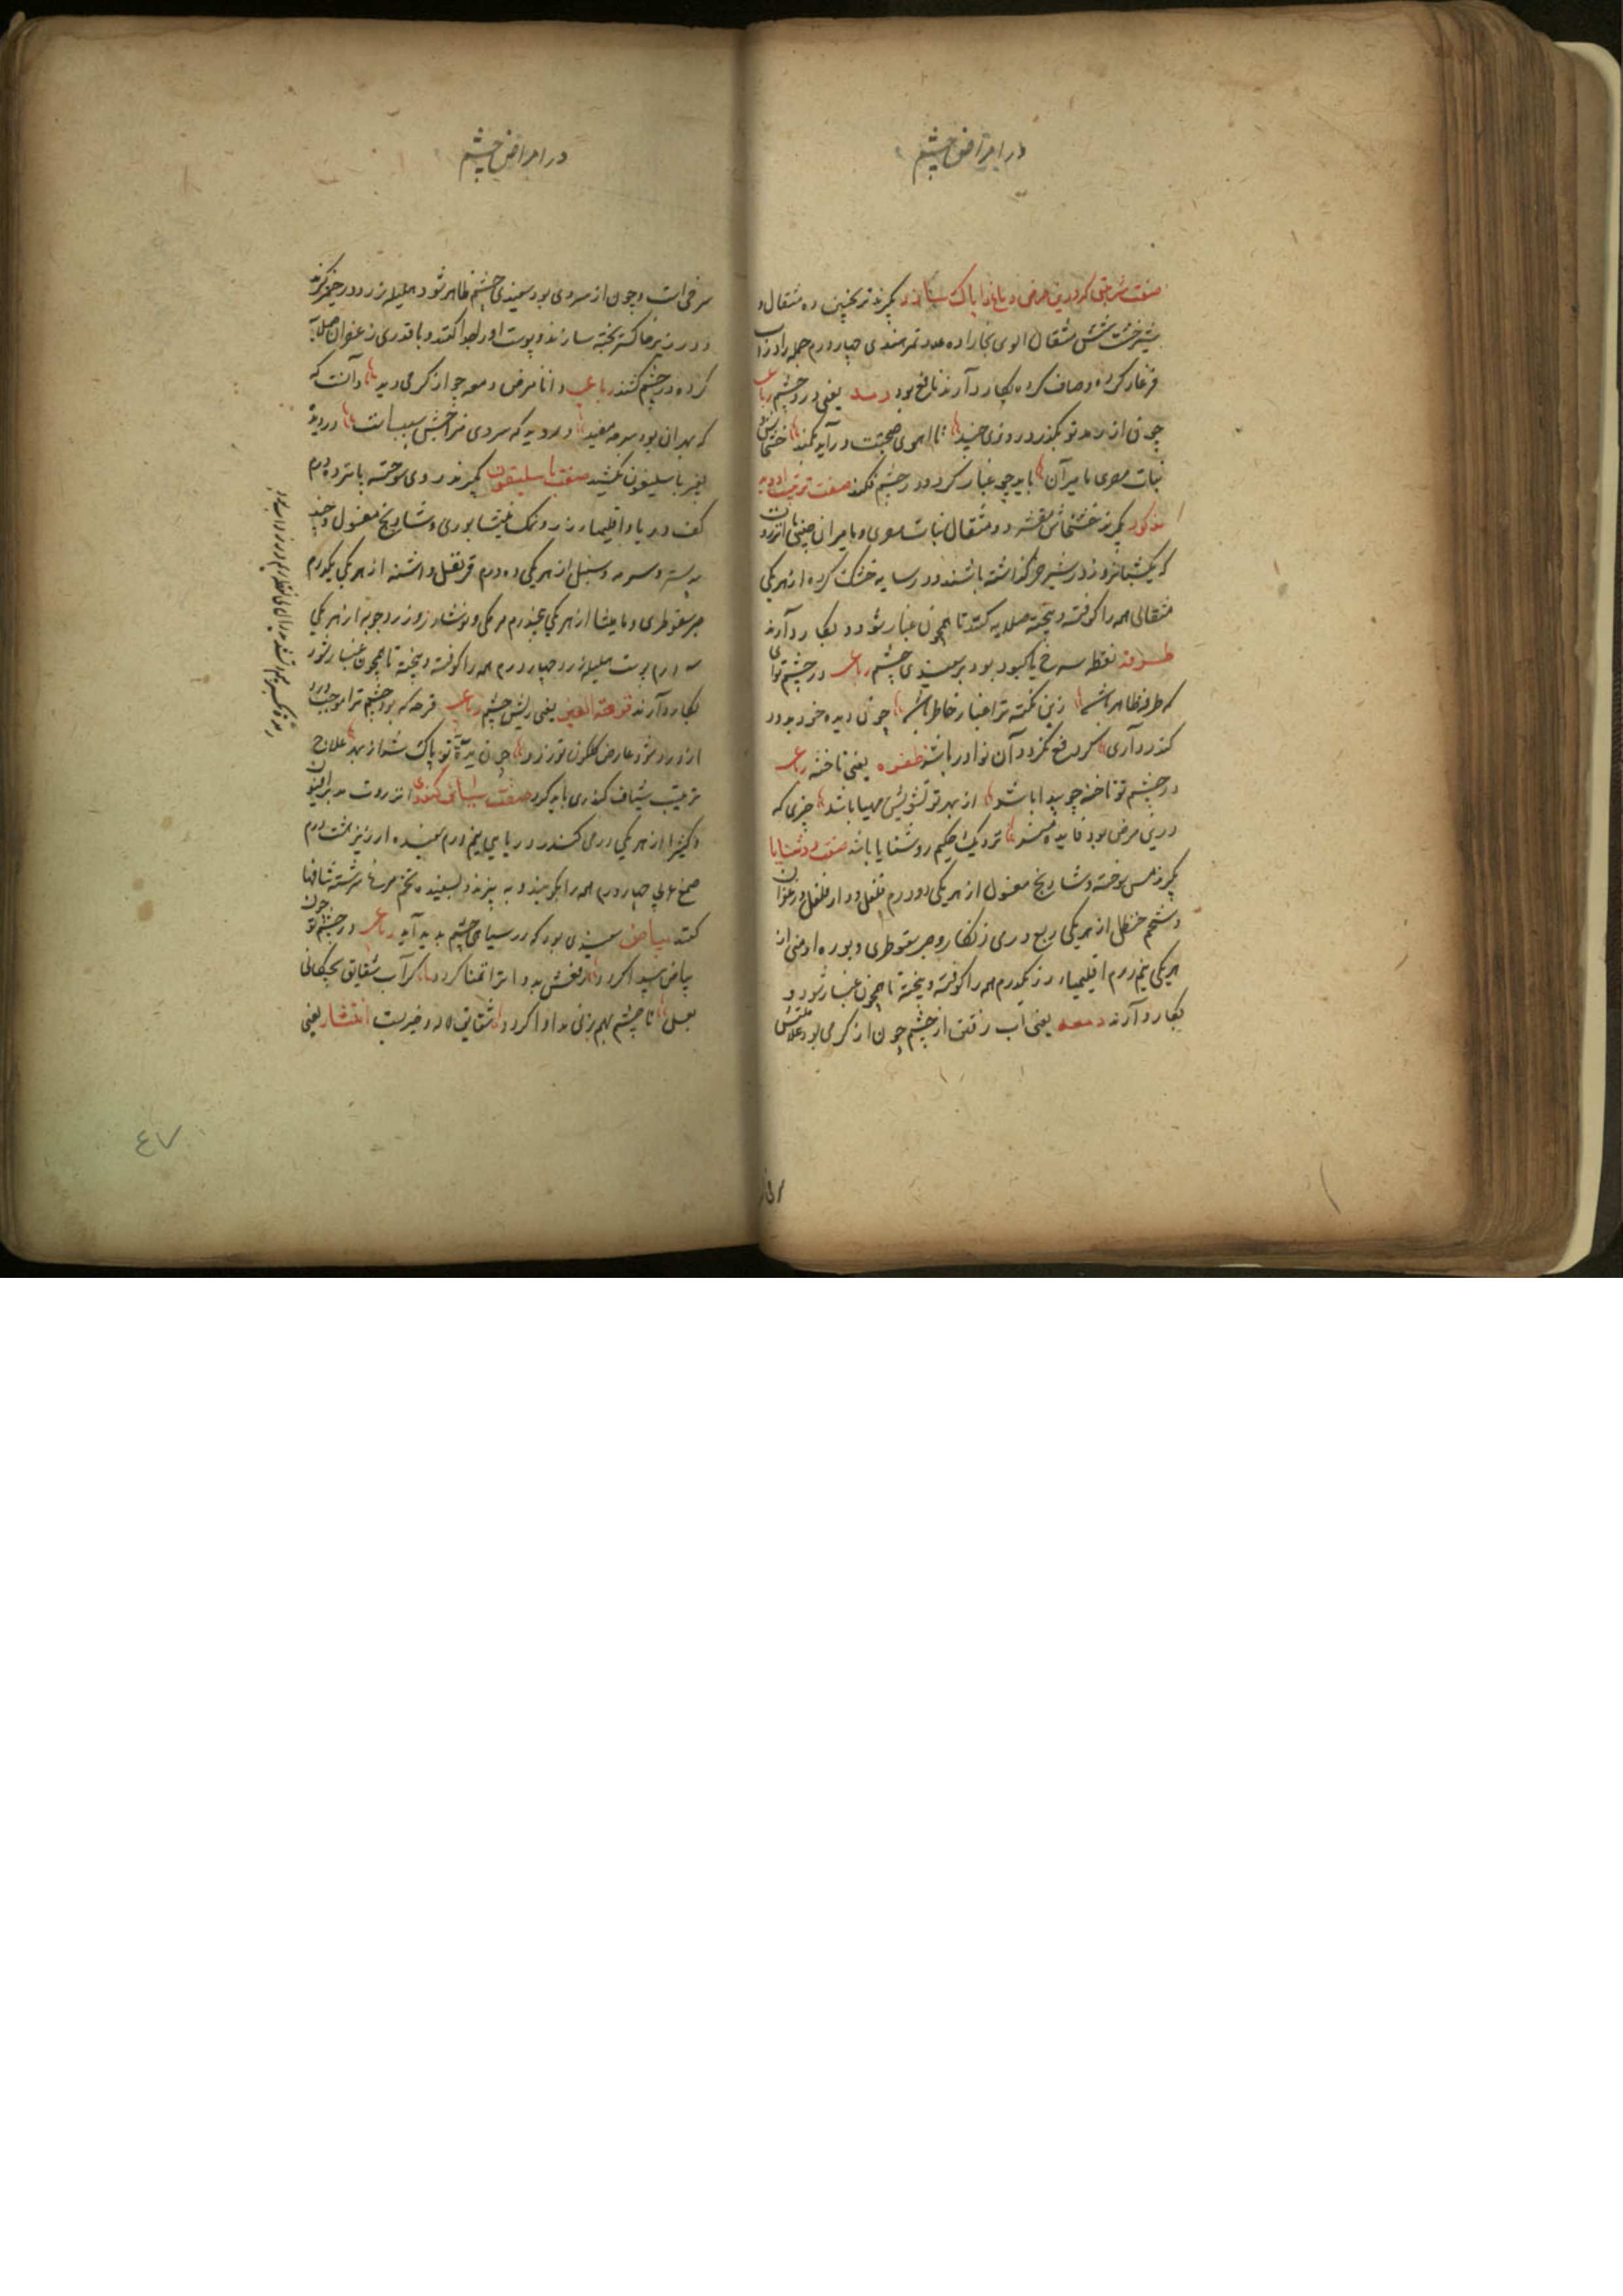 در امراض چشم
صفت شربتی که درین مرض دماغ را پاک سازد بگیرند ترنجبین ده مثقال و
شیرخشت شش مثقال الوی بخارا ده عدد تمر هندی چهار درم جمله را در آب
فرغار کرده و صاف کرده بکار دارند نافع بود رمد یعنی درد چشم رباعی
چون از رمد تو بگذرد روزی چند تا اهوی صحتت در آید بکمند خشخاش
نبات مصری مامیران باید چو غبار کرد و در چشم فکند صفت ترتیب ادویه
مذکور بگیرند خشخاش مقشر دو مثقال نبات مصری و مامیران چینی انزروت
که یکشبانروز در شیر خر گذاشته باشند و در سایه خشک کرده از هر یکی
مثقالی همه را کوفته و بیخته صلایه کنند تا همچون غبار شود و بکار دارند
طرفه نقطه سرخ یا کبود بود بر سپیدی چشم رباعی در چشم تو ای
که طرفه ظاهر باشد زین نکته ترا غبار خاطر باشد چون دیده خود بدود
کندر داری گر دفع نگردد آن نوادر باشد ظفره یعنی ناخنه رباعی
در چشم تو ناخنه چو پیدا باشد از بهر تو تشویش مهیا باشد چیزی که
درین مرض بود فایده مند نزدیک حکیم روشنایا باشد صفت روشنایا
بگیرند مس سوخته و شادنج مغسول از هر یکی دو درم فلفل و دار فلفل و زعفران
و شحم حنظل از هر یکی ربع درمی زنگار و صبر سقوطری و بوره ارمنی از
هر یکی نیم درم اقلیمیاء زر یکدرم همه را کوفته و بیخته تا همچون غبار شود و
بکار دارند دمعه یعنی آب رفتن از چشم چون از گرمی بود علامتش
در امراض چشم
سرخی است و چون از سردی بود سپیدی چشم ظاهر شود هلیله زرد در خمیر گیرند
و در زیر خاکستر پخته سازند و پوست او را جدا کنند و با قدری زعفران صلایه
کرده در چشم کشند رباعی دانا مرض دمعه چو از گرمی دید دانست که
که بهر آن بود سرمه مفید ور دید که سردی مزاجش سبب است
بغیر باسلیقون نکشید صفت باسلیقون بگیرند روی سوخته پانزده درم
کف دریا و اقلیمیاء زر و نمک نیشابوری و شادنج مغسول و جند
بیدستر و سرمه و سنبل از هر یکی ده درم قرنفل و اشنه از هر یکی یکدرم
صبر سقوطری و مامیثا از هر یکی پنجدرم مر مکی و نوشادر و زردچوبه از هر یکی
سه درم پوست هلیله زرد چهار درم همه را کوفته و بیخته تا همچون غبار شود
بکار دارند قرحة العین یعنی ریش چشم رباعی قرحه که بود چشم ترا موجب درد
ترتیب شیاف کندری باید کرد صفت شیاف کندری انزروت مدبر افیون
و کتیرا از هر یکی درمی کندر دریایی نیم درم سفیده ارزیز هشت درم
صمغ عربی چهار درم همه را بکوبند و به بیزند و بسفیده تخم مرغ سرشته شافها
کنند بیاض سپیدی بود که در سیاهی چشم پدید آید رباعی در چشم تو چون
بیاض پیدا گردد رفعش بدوا ترا تمنا گردد گر آب شقایق بچکانی
بعسل تا چشم بهم زنی مداوا گردد شقایق لاله دخترست انتشار یعنی
٤٧